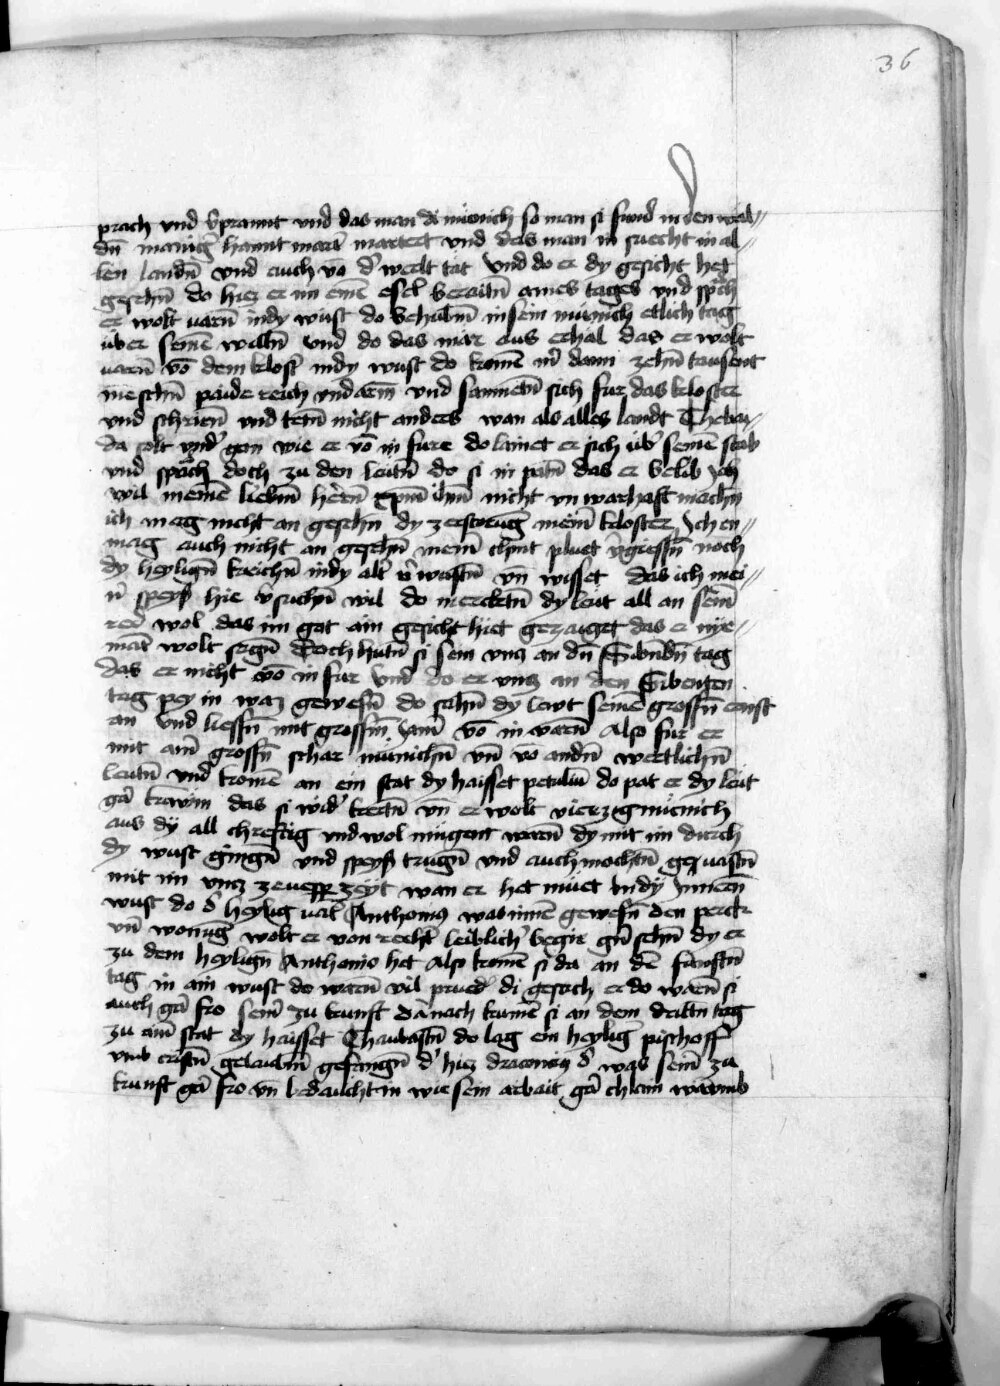 36
prach vnd v̄prannt vnd das man di münich so man si fund in den wal⸗
dn̄ maniḡ hannt mart̄ martert vnd das man in suecht in al⸗
len landn̄ vnd auch vō d' werlt tät Vnd do er dy gesicht het
gesehn̄ do hiez er im einē esel beraitn̄ aines tages vnd sprach
er wolt uarn̄ in dy wüst do behaltn̄ in sein münich etlich tag
über seinē willn̄ vnd do das mär aus erhal das er wolt
uarn̄ vō dem klost' in dy wüst do komē mer dann zehn̄ tausent
meschn̄ paide reich vnd arm̄ vnd samnetn̄ sich für das kloster
vnd schriern̄ vnd tetn̄ nicht anders wan als alles landt Theba⸗
da solt vnd' gen wie er vō in füre do lainet er sich üb' seinē stab
vnd sprach doch zu den leutn̄ do si in patn̄ das er belib Ich
wil meinē liebm̄ hern̄ xp̄m ih̄m nicht vnwarhaft machn̄
ich mag nicht an gesehn̄ dy zerstorūg meīn kloster Ich en⸗
mag auch nicht an gesehn̄ mein̄ chint pluet v̄giessn̄ noch
dy heylign̄ kirichn̄ in dy alt' v̄wüstn̄ vn̄ wisset das ich mei⸗
n̄ speys hie v̄suchn̄ wil do mercktn̄ dy leüt all an sein̄
red wol das im got ain gesicht hiet gezaiget das er nye⸗
māt wolt segn̄ Doch hütn̄ si sein vncz an dn̄ Sibndn̄ tag
das er nicht vō in für Vnd do er vncz an den Sibenten
tag pey in waz gewesn̄ do sahn̄ dy lewt seinē grossn̄ ernst
an vnd liessn̄ mit grossm̄ Iam̄ vō in varn̄ Also für er
mit ain̄ grossn̄ schar münichn̄ vn̄ vo andn̄ werltlichn̄
leutn̄ vnd komē an ein stat dy haisset petuliu do pat er dy leüt
gar kawm das si wid' kertn̄ vn̄ er wolt vierzig münich
aus dy all chreftig vnd wol mügent warn̄ dy mit im durch
dy wüst gingn̄ vnd speys trugn̄ vnd auch mochtn̄ geuastn̄
mit im vncz ze uesper zeyt wan er het müet in dy Innern̄
wüst do d' heylig uat' Anthonius was inne gewesn̄ den perck
vn̄ wonūg wolt er von recht' leiblich' begir gn̄ sehn̄ dy er
zu dem heylign̄ Anthonio het Also komē si dā an dē fūnftn̄
tag in ain wüst do warn̄ vil prued' di gesach er do warn̄ si
auch gā fro sein̄ zu kunft Dā nach kumē si an dem drittn̄ tag
zu ain̄ stat dy haisset Thaubastn̄ do lag ein heylig' pischoff
vmb cristn̄ gelaubm̄ gefangn̄ d' hiez draconius d' was sein̄ zu
kunft gā fro vn̄ bedaucht in wie sein arbait gā chlain warumb